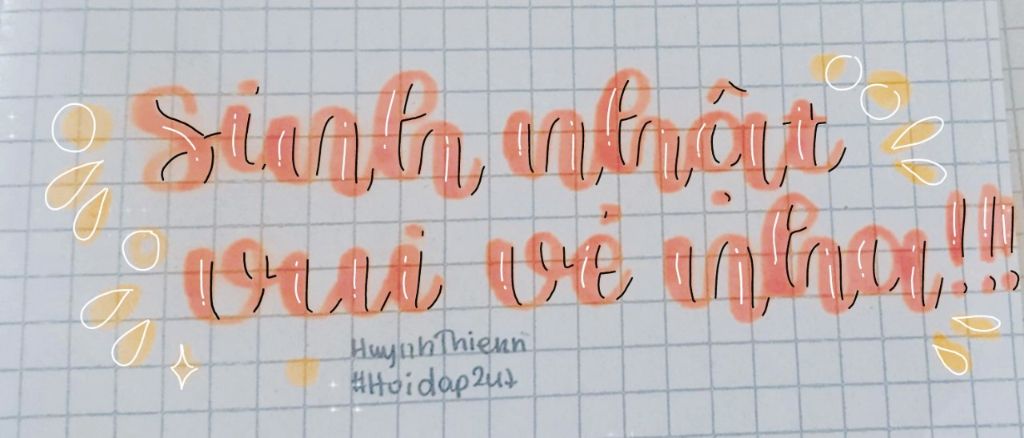 Sinh nhật
vui vẻ nha!!!
HuynhThienn
#Hoidap247